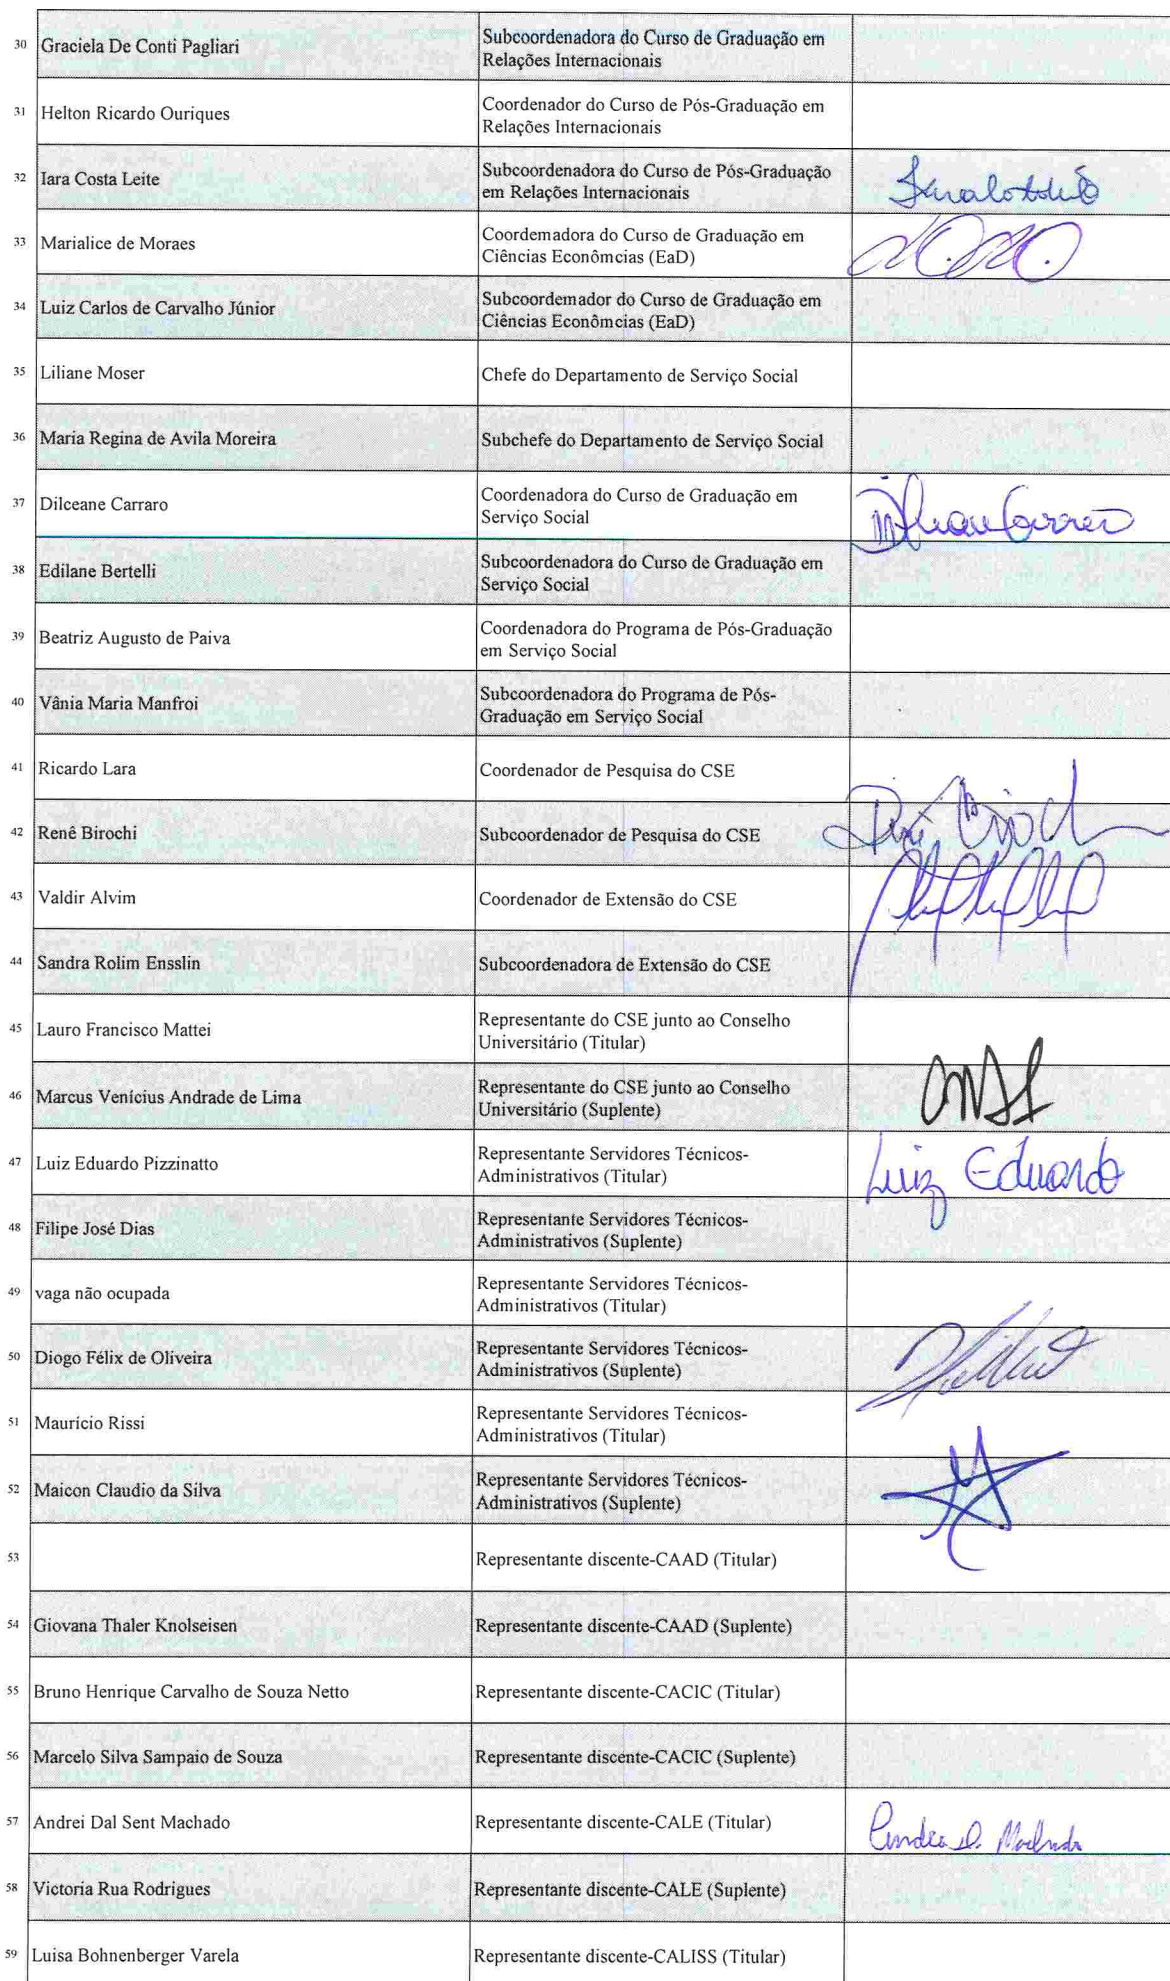 30 Graciela De Conti Pagliari Subcoordenadora do Curso de Graduação em
Relações Internacionais
31 Helton Ricardo Ouriques Coordenador do Curso de Pós-Graduação em
Relações Internacionais
32 Iara Costa Leite Subcoordenadora do Curso de Pós-Graduação
em Relações Internacionais
33 Marialice de Moraes Coordemadora do Curso de Graduação em
Ciências Econômcias (EaD)
34 Luiz Carlos de Carvalho Júnior Subcoordemador do Curso de Graduação em
Ciências Econômcias (EaD)
35 Liliane Moser Chefe do Departamento de Serviço Social
36 Maria Regina de Avila Moreira Subchefe do Departamento de Serviço Social
37 Dilceane Carraro Coordenadora do Curso de Graduação em
Serviço Social
38 Edilane Bertelli Subcoordenadora do Curso de Graduação em
Serviço Social
39 Beatriz Augusto de Paiva Coordenadora do Programa de Pós-Graduação
em Serviço Social
40 Vânia Maria Manfroi Subcoordenadora do Programa de Pós-
Graduação em Serviço Social
41 Ricardo Lara Coordenador de Pesquisa do CSE
42 Renê Birochi Subcoordenador de Pesquisa do CSE
43 Valdir Alvim Coordenador de Extensão do CSE
44 Sandra Rolim Ensslin Subcoordenadora de Extensão do CSE
45 Lauro Francisco Mattei Representante do CSE junto ao Conselho
Universitário (Titular)
46 Marcus Venícius Andrade de Lima Representante do CSE junto ao Conselho
Universitário (Suplente)
47 Luiz Eduardo Pizzinatto Representante Servidores Técnicos-
Administrativos (Titular)
Luiz Eduardo
48 Filipe José Dias Representante Servidores Técnicos-
Administrativos (Suplente)
49 vaga não ocupada Representante Servidores Técnicos-
Administrativos (Titular)
50 Diogo Félix de Oliveira Representante Servidores Técnicos-
Administrativos (Suplente)
51 Maurício Rissi Representante Servidores Técnicos-
Administrativos (Titular)
52 Maicon Claudio da Silva Representante Servidores Técnicos-
Administrativos (Suplente)
53 Representante discente-CAAD (Titular)
54 Giovana Thaler Knolseisen Representante discente-CAAD (Suplente)
55 Bruno Henrique Carvalho de Souza Netto Representante discente-CACIC (Titular)
56 Marcelo Silva Sampaio de Souza Representante discente-CACIC (Suplente)
57 Andrei Dal Sent Machado Representante discente-CALE (Titular)
58 Victoria Rua Rodrigues Representante discente-CALE (Suplente)
59 Luisa Bohnenberger Varela Representante discente-CALISS (Titular)